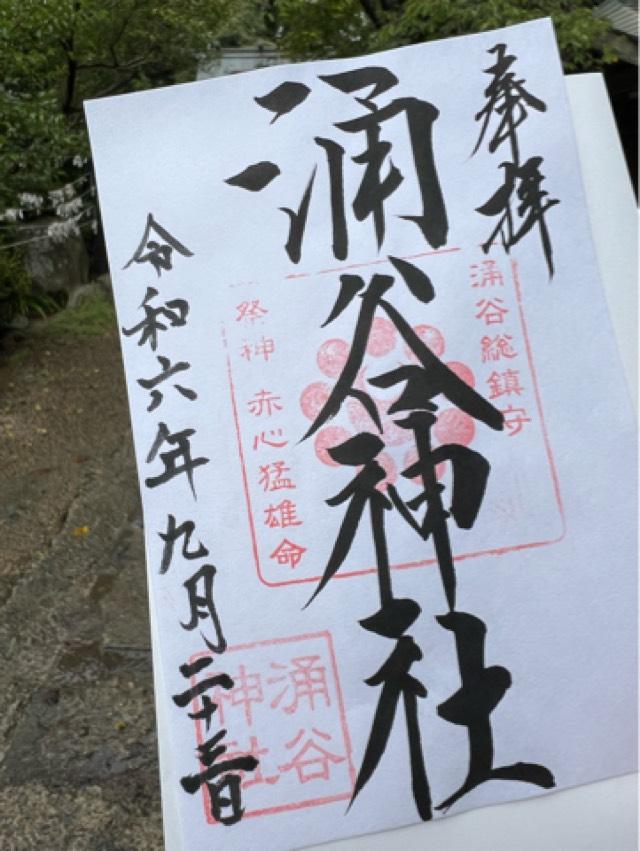 奉拝
涌谷神社
涌谷総鎮守
祭神 赤心猛雄命
涌谷
神社
令和六年九月二十三日